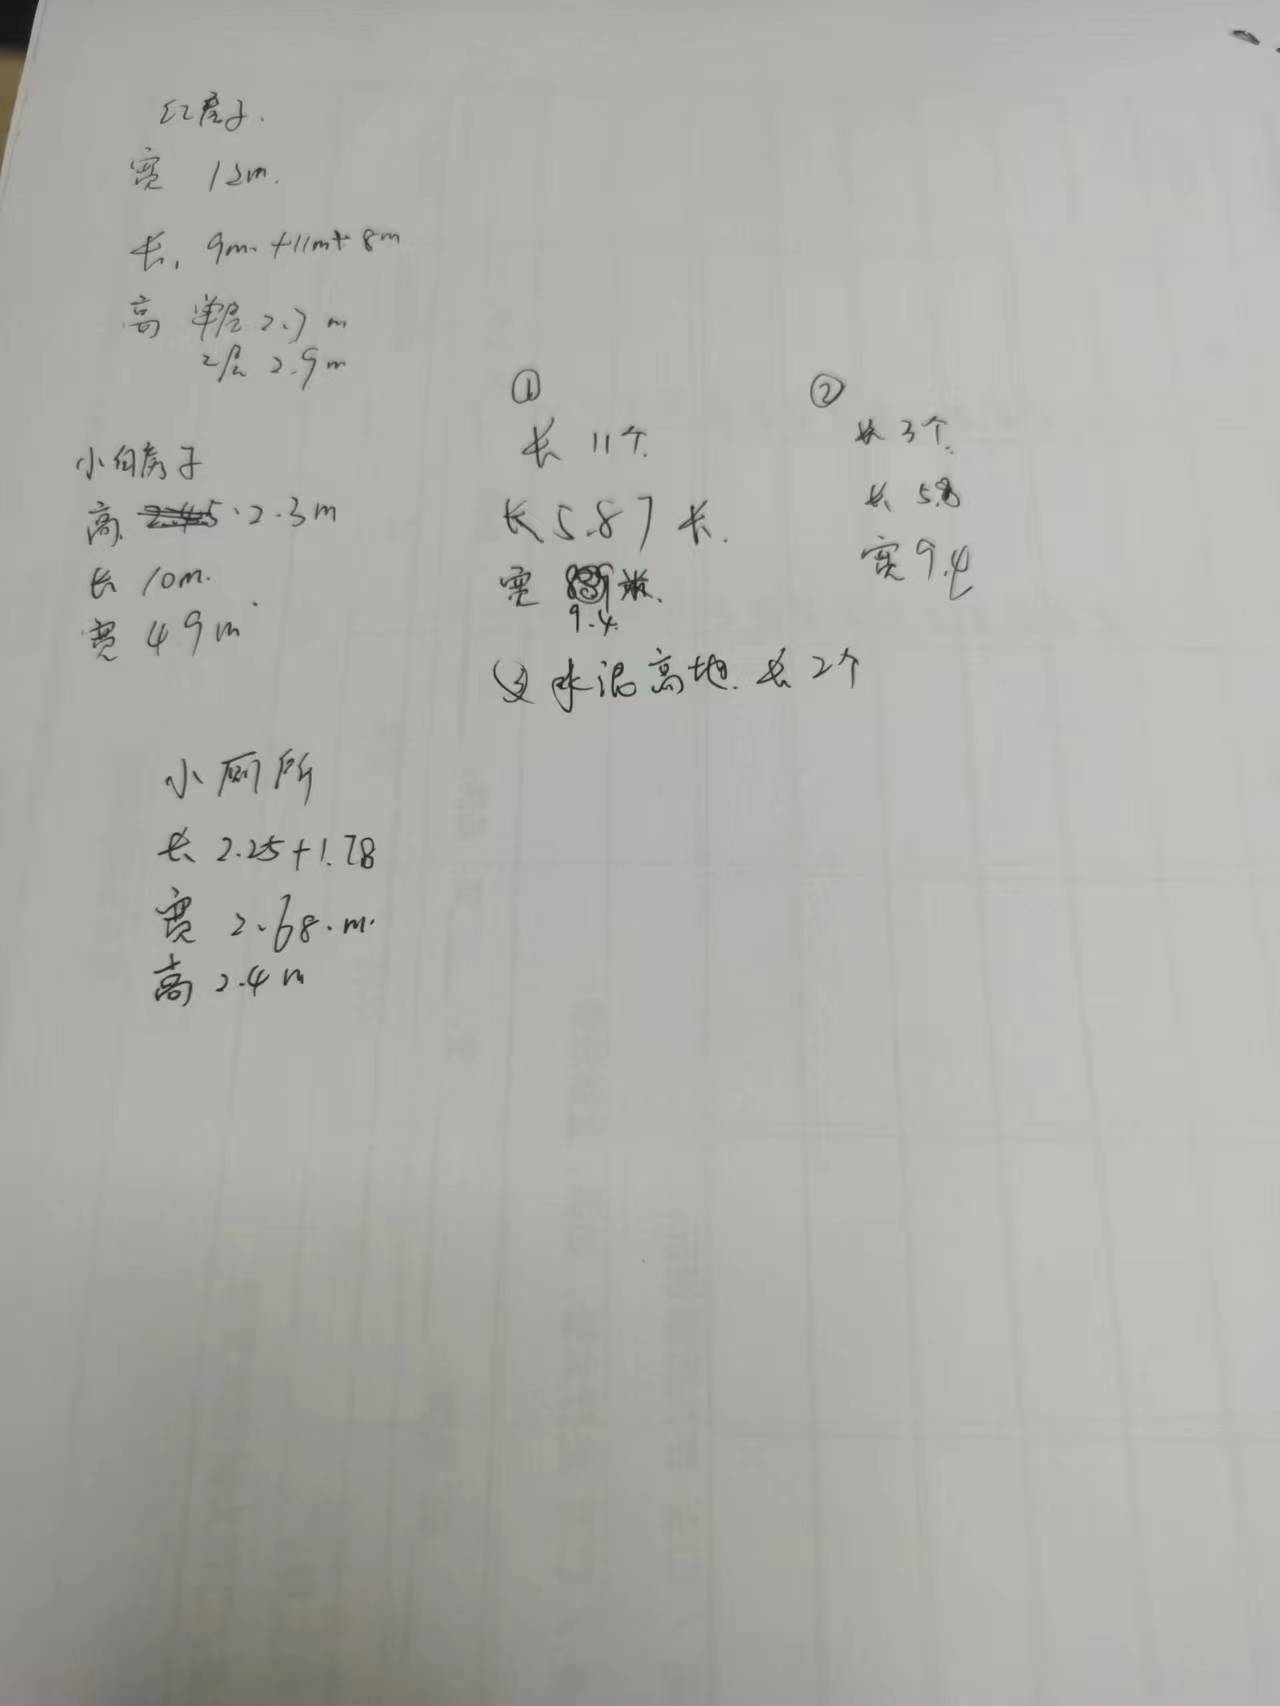 红房子.
宽 12m.
长, 9m+11m+8m
高 单层 2.7m
2层 2.9m
小白房子
高 2.3m
长 10m.
宽 4 9m
①
长 11个
长 5.87 长.
宽 米.
9.4.
水泥高地. 长 2个
②
长 3个.
长 5.8
宽 9.4
小厕所
长 2.25+1.78
宽 2.68.m.
高 2.4m